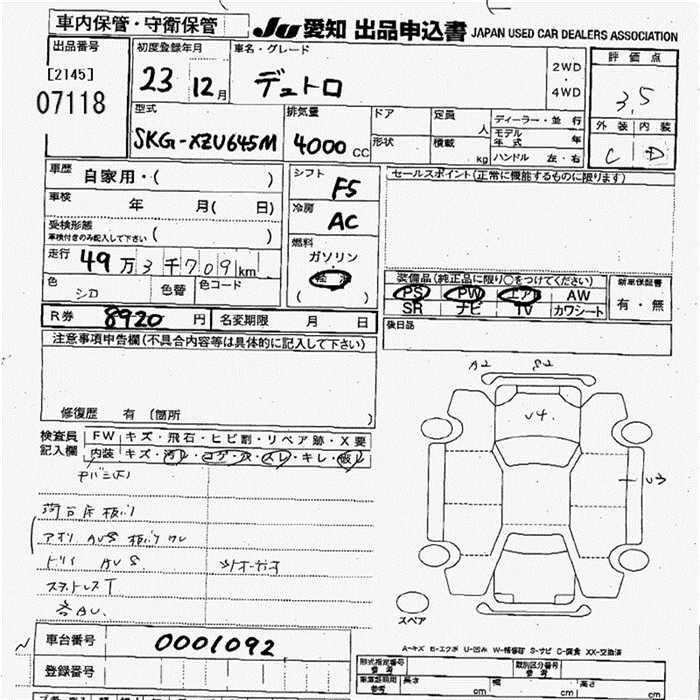 車内保管・守衛保管
JU 愛知 出品申込書 JAPAN USED CAR DEALERS ASSOCIATION
出品番号
[2145]
07118
初度登録年月
23年12月
車名・グレード
デュトロ
2WD
・
4WD
評価点
3.5
外装 内装
C D
型式
SKG-XZU645M
排気量
4000 CC
ドア
形状
定員 人
積載 kg
ディーラー・並行
モデル年式 年
ハンドル 左・右
車歴 自家用・( )
車検 年 月( 日)
受検形態
車検付きのみ記入して下さい ( )
走行 49万3千709km
色 シロ 色替 色コード
シフト F5
冷房 AC
燃料
ガソリン
軽油
( )
セールスポイント(正常に機能するものに限ります)
装備品(純正品に限り○をつけてください)
PS PW エアB AW
SR ナビ TV カワシート
新車保証書
有・無
後日品
R券 8920円 名変期限 月 日
注意事項申告欄(不具合内容等は具体的に記入して下さい)
修復歴 有(箇所 )
検査員記入欄
FW キズ・飛石・ヒビ割・リペア跡・X要
内装 キズ・汚れ・コゲ・穴・スレ・キレ・破れ
A2 S2
U4
U3
スペア
A-キズ E-エクボ U-凹み W-補修跡 S-サビ C-腐食 XX-交換済
車台番号 0001092
登録番号
形式指定番号
参考
類別区分番号
参考
車両証明用
参考
長さ cm 幅 cm 高さ cm